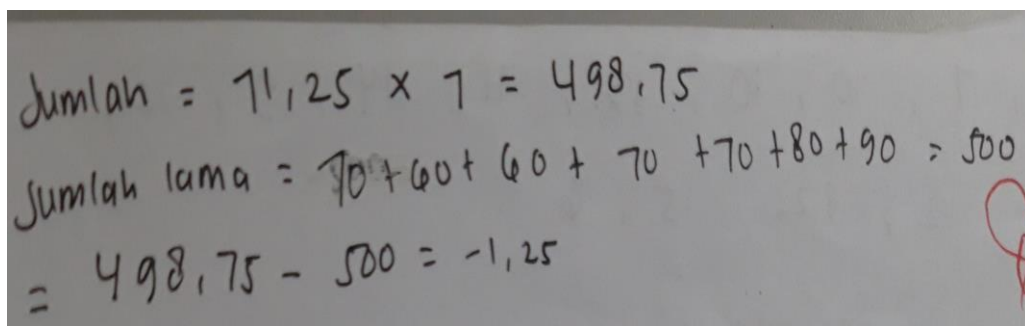 Jumlah = 71,25 x 7 = 498,75
Jumlah lama = 70 + 60 + 60 + 70 + 70 + 80 + 90 = 500
= 498,75 - 500 = -1,25